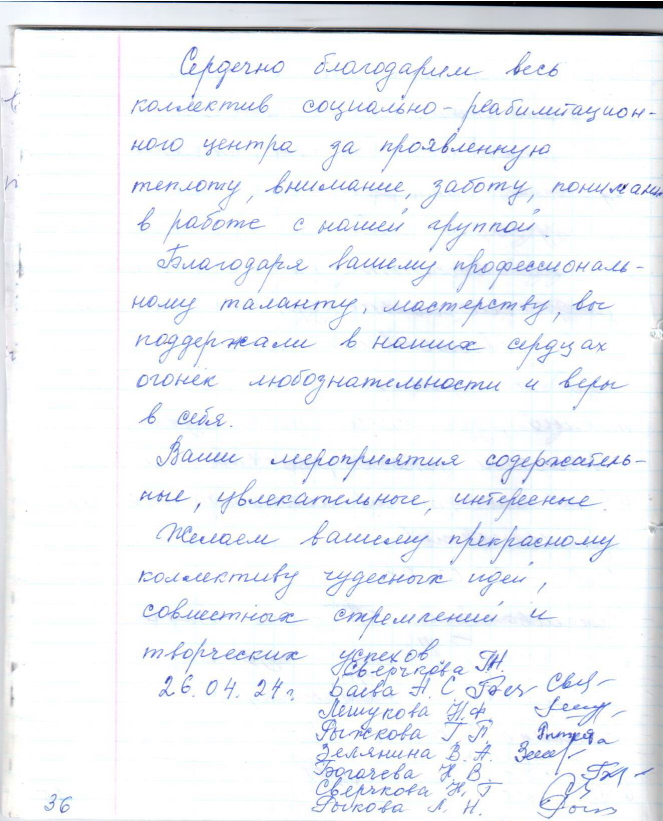 Сердечно благодарим весь
коллектив социально-реабилитацион-
ного центра за проявленную
теплоту, внимание, заботу, понимание
в работе с нашей группой.
Благодаря вашему профессиональ-
ному таланту, мастерству, вы
поддержали в наших сердцах
огонёк любознательности и веры
в себя.
Ваши мероприятия содержатель-
ные, увлекательные, интересные.
Желаем вашему прекрасному
коллективу чудесных идей,
совместных стремлений и
творческих успехов
Сверчкова Т.Н.
26.04.24г. Баева Н. С
Лешукова Н.Ф.
Рыжкова Г. П.
Зелянина В. А.
Богачева Н. В.
Сверчкова Н. Г
Рыкова Л. Н.
36